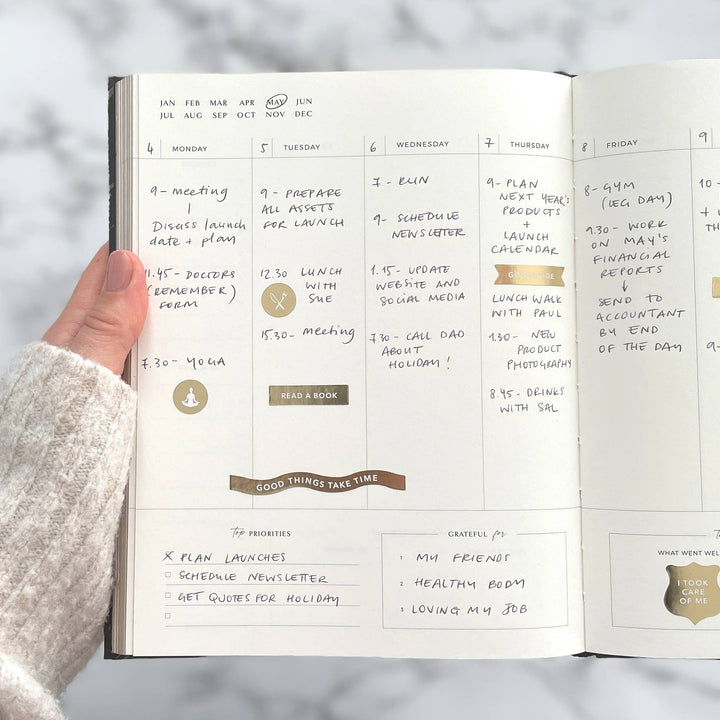 JAN FEB MAR APR MAY JUN
JUL AUG SEP OCT NOV DEC
4 MONDAY
9 - meeting
Disuss launch
date + plan
11.45 - DOCTORS
(REMEMBER)
FORM
7.30 - YOGA
5 TUESDAY
9 - PREPARE
ALL ASSETS
FOR LAUNCH
12.30 LUNCH
WITH
SUE
15.30 - meeting
READ A BOOK
6 WEDNESDAY
7 - RUN
9 - SCHEDULE
NEWSLETTER
1.15 - UPDATE
WEBSITE AND
SOCIAL MEDIA
7.30 - CALL DAD
ABOUT
HOLIDAY!
GOOD THINGS TAKE TIME
7 THURSDAY
9 - PLAN
NEXT YEAR'S
PRODUCTS
+
LAUNCH
CALENDAR
LUNCH WALK
WITH PAUL
1.30 - NEW
PRODUCT
PHOTOGRAPHY
8.45 - DRINKS
WITH SAL
8 FRIDAY
8 - GYM
(LEG DAY)
9.30 - WORK
ON MAY'S
FINANCIAL
REPORTS
SEND TO
ACCOUNTANT
BY END
OF THE DAY
9
10 -
+
TH
9 -
top PRIORITIES
PLAN LAUNCHES
SCHEDULE NEWSLETTER
GET QUOTES FOR HOLIDAY
GRATEFUL for
1 MY FRIENDS
2 HEALTHY BODY
3 LOVING MY JOB
WHAT WENT WEL
I TOOK
CARE
OF ME